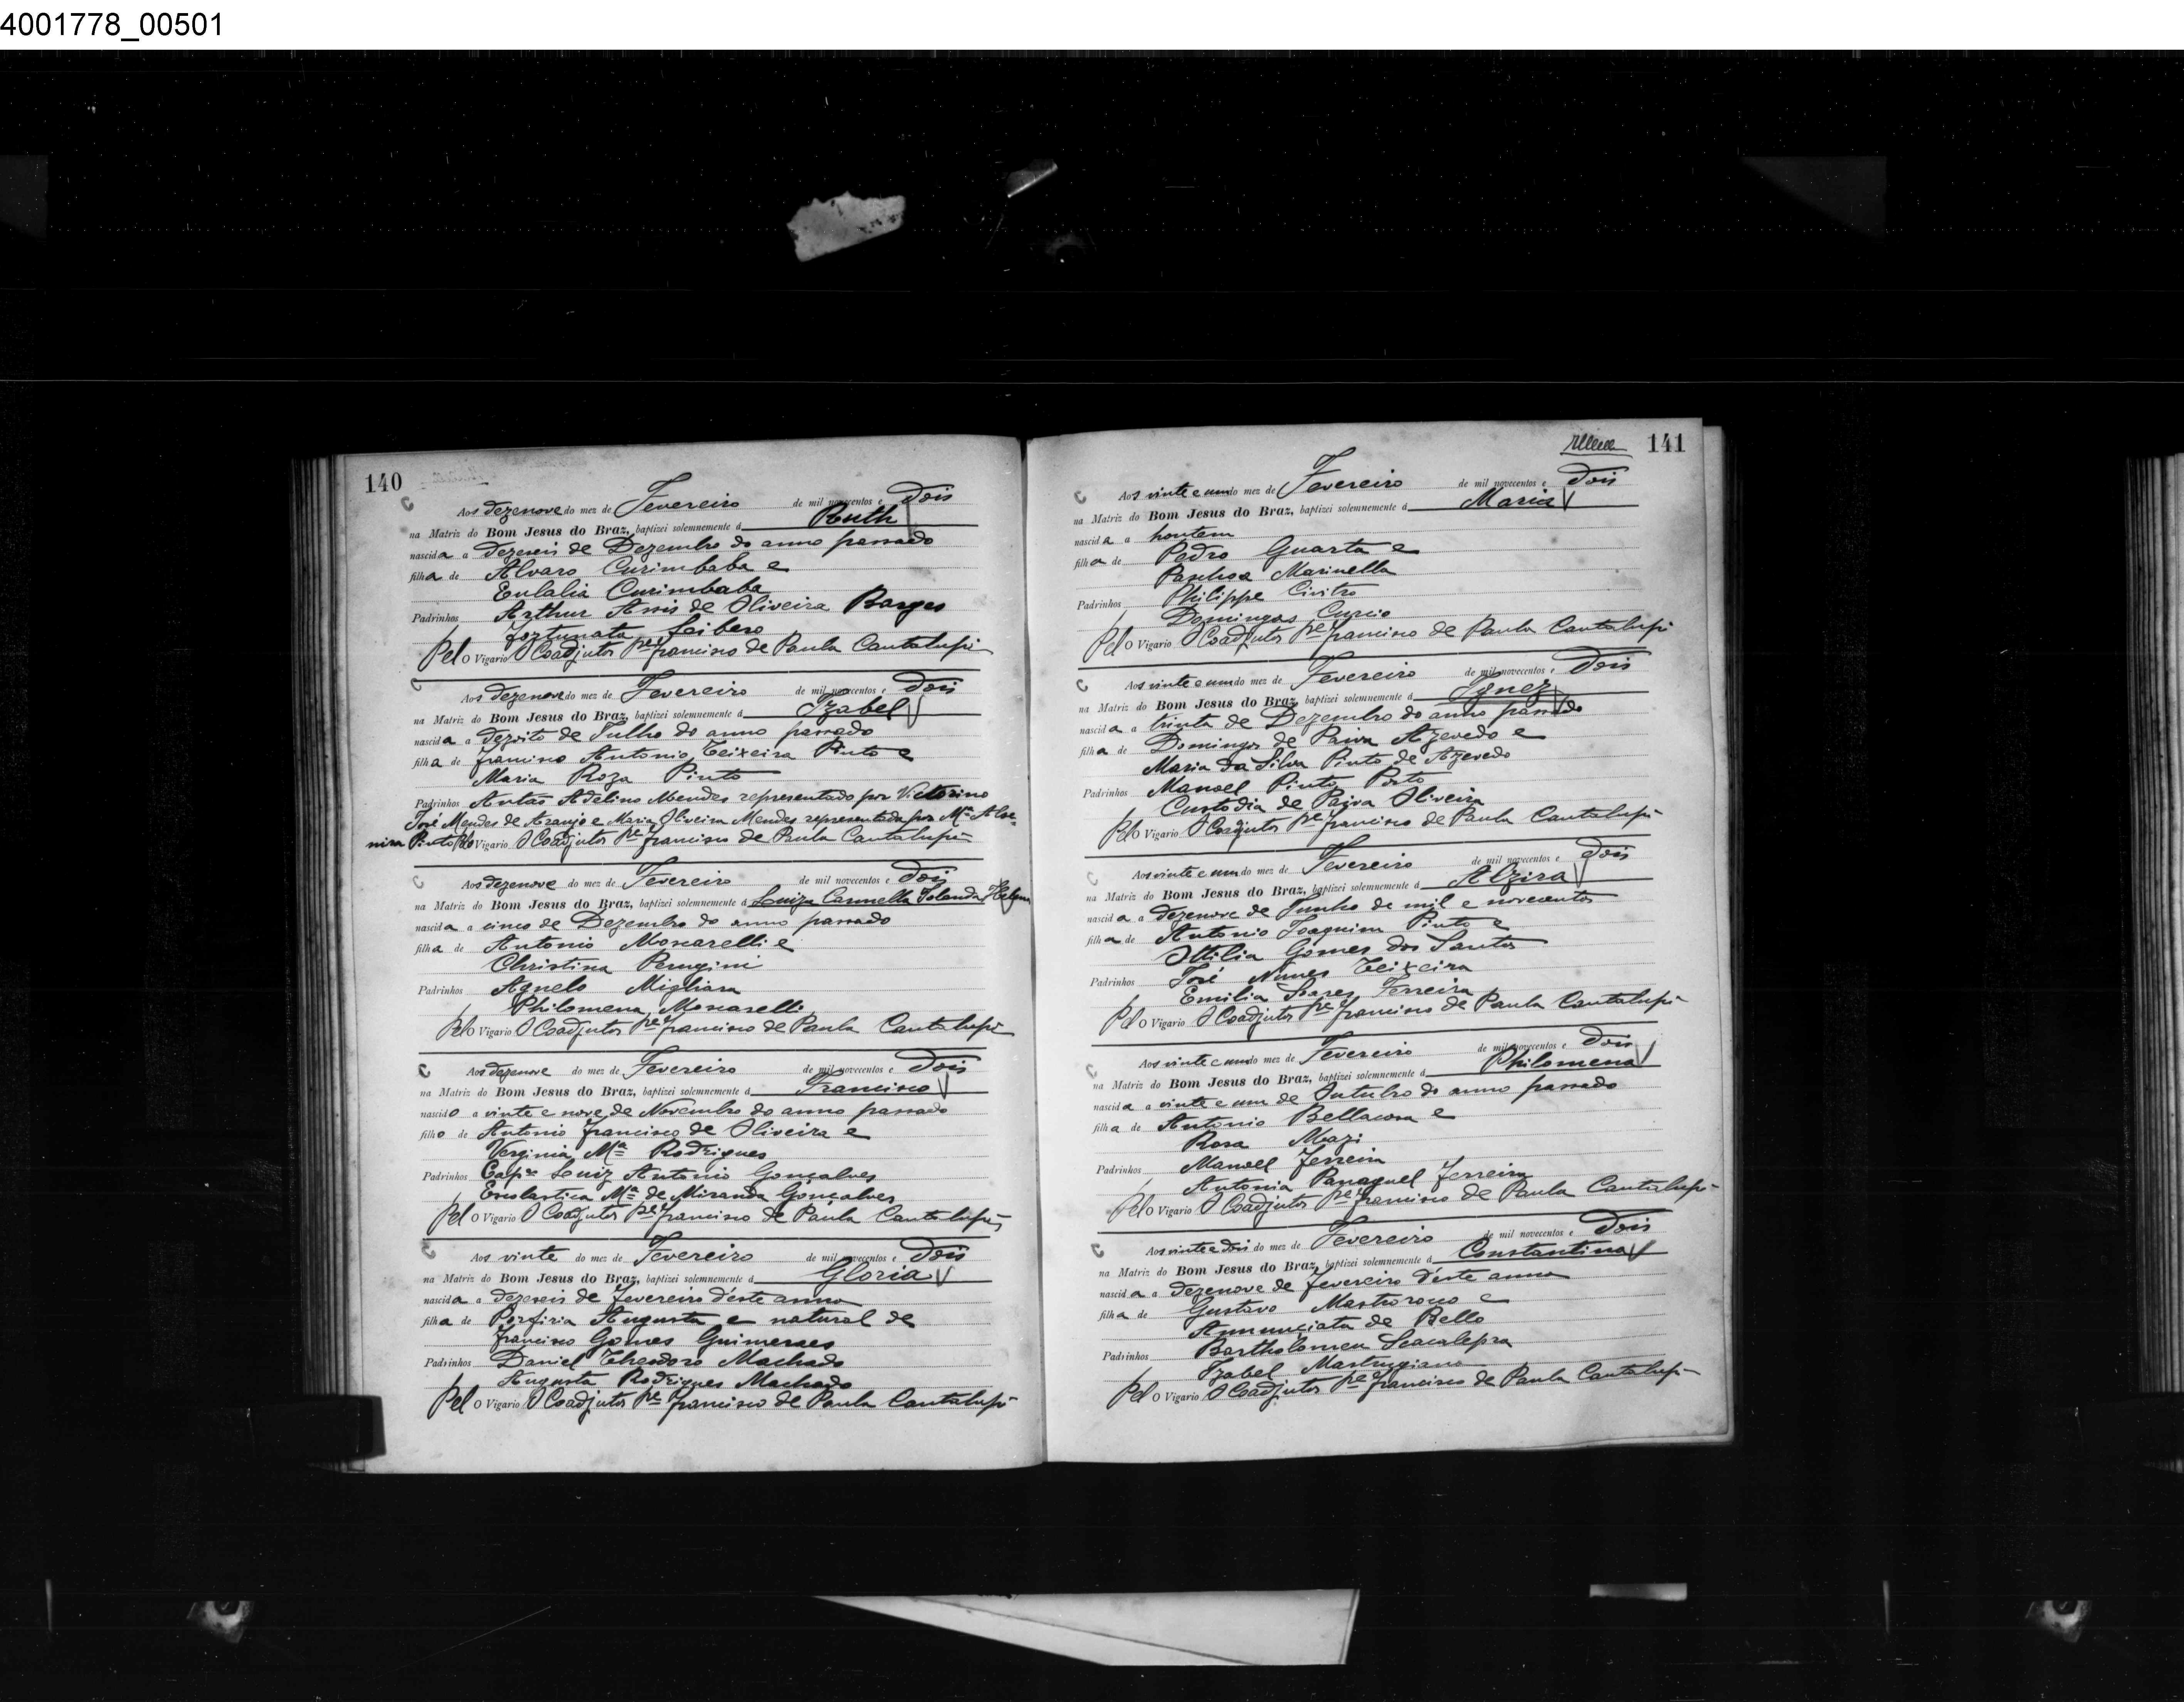 4001778_00501
140
Aos dezenove do mez de Fevereiro de mil novecentos e Dois
na Matriz do Bom Jesus do Braz, baptizei solemnemente á Ruth
nascida a dezeseis de Dezembro do anno passado
filha de Alvaro Curimbaba e
Eulalia Curimbaba
Padrinhos Arthur Assis de Oliveira Borges
Fortunata Leibero
Pelo Vigario O Coadjutor Pe Francisco de Paula Cantalupi
Aos dezenove do mez de Fevereiro de mil novecentos e Dois
na Matriz do Bom Jesus do Braz, baptizei solemnemente á Izabel
nascida a dezoito de Julho do anno passado
filha de Francisco Antonio Teixeira Pinto e
Maria Roza Pinto
Padrinhos Antão Adelino Mendes representado por Victorino
José Mendes de Araujo e Maria Oliveira Mendes representada por Ma
Pinto Pelo Vigario O Coadjutor Pe Francisco de Paula Cantalupi
Aos dezenove do mez de Fevereiro de mil novecentos e Dois
na Matriz do Bom Jesus do Braz, baptizei solemnemente á Luiza Carmella Iolanda Helena
nascida a cinco de Dezembro do anno passado
filha de Antonio Moscarelli e
Christina Perugini
Padrinhos Agnelo Migliara
Philomena Moscarelli
Pelo Vigario O Coadjutor Pe Francisco de Paula Cantalupi
Aos dezenove do mez de Fevereiro de mil novecentos e Dois
na Matriz do Bom Jesus do Braz, baptizei solemnemente á Francisco
nascido a vinte e nove de Novembro do anno passado
filho de Antonio Francisco de Oliveira e
Verginia Ma Rodrigues
Padrinhos Capm Luiz Antonio Gonçalves
Escolastica Ma de Miranda Gonçalves
Pelo Vigario O Coadjutor Pe Francisco de Paula Cantalupi
Aos vinte do mez de Fevereiro de mil novecentos e Dois
na Matriz do Bom Jesus do Braz, baptizei solemnemente á Gloria
nascida a dezeseis de Fevereiro d'este anno
filha de Porfiria Augusta e natural de
Francisco Gomes Guimeraes
Padrinhos Daniel Theodoro Machado
Augusta Rodrigues Machado
Pelo Vigario O Coadjutor Pe Francisco de Paula Cantalupi
141
Aos vinte e um do mez de Fevereiro de mil novecentos e Dois
na Matriz do Bom Jesus do Braz, baptizei solemnemente á Maria
nascida a hontem
filha de Pedro Guarta e
Paschoa Marinella
Padrinhos Philippe Civitro
Domingas Curcio
Pelo Vigario O Coadjutor Pe Francisco de Paula Cantalupi
Aos vinte e um do mez de Fevereiro de mil novecentos e Dois
na Matriz do Bom Jesus do Braz, baptizei solemnemente á Ignez
nascida a trinta de Dezembro do anno passado
filha de Domingos de Paiva Azevedo e
Maria da Silva Pinto de Azevedo
Padrinhos Manoel Pinto Porto
Custodia de Paiva Oliveira
Pelo Vigario O Coadjutor Pe Francisco de Paula Cantalupi
Aos vinte e um do mez de Fevereiro de mil novecentos e Dois
na Matriz do Bom Jesus do Braz, baptizei solemnemente á Alzira
nascida a dezenove de Junho de mil e novecentos
filha de Antonio Joaquim Pinto e
Ottilia Gomes dos Santos
Padrinhos José Nunes Teixeira
Emilia Soares Ferreira
Pelo Vigario O Coadjutor Pe Francisco de Paula Cantalupi
Aos vinte e um do mez de Fevereiro de mil novecentos e Dois
na Matriz do Bom Jesus do Braz, baptizei solemnemente á Philomena
nascida a vinte e um de Outubro do anno passado
filha de Antonio Bellacosa e
Rosa Mazi
Padrinhos Manoel Ferreira
Antonia Panaguel Ferreira
Pelo Vigario O Coadjutor Pe Francisco de Paula Cantalupi
Aos vinte e dois do mez de Fevereiro de mil novecentos e Dois
na Matriz do Bom Jesus do Braz, baptizei solemnemente á Constantina
nascida a dezenove de Fevereiro d'este anno
filha de Gustavo Mastrorocco e
Annunciata de Bello
Padrinhos Bartholomeu Scacalepra
Izabel Mastrugiano
Pelo Vigario O Coadjutor Pe Francisco de Paula Cantalupi